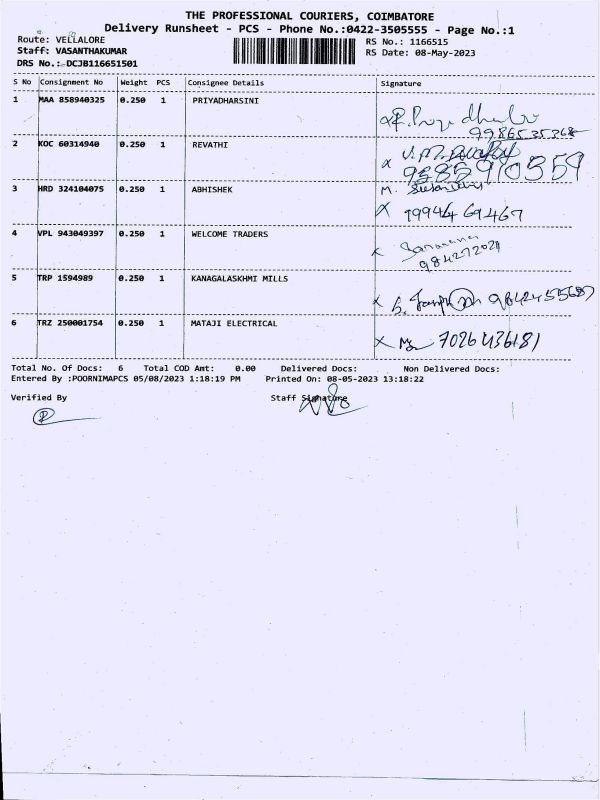 THE PROFESSIONAL COURIERS, COIMBATORE
Delivery Runsheet - PCS - Phone No.:0422-3505555 - Page No.:1
Route: VELLALORE RS No.: 1166515
Staff: VASANTHAKUMAR RS Date: 08-May-2023
DRS No.:-DCJB116651501
S No Consignment No Weight PCS Consignee Details Signature
1 MAA 858940325 0.250 1 PRIYADHARSINI
2 KOC 60314940 0.250 1 REVATHI
9385910359
3 HRD 324104075 0.250 1 ABHISHEK M.
X 199446 69467
4 VPL 943049397 0.250 1 WELCOME TRADERS
X
5 TRP 1594989 0.250 1 KANAGALASKHMI MILLS
X 9842455687
6 TRZ 250001754 0.250 1 MATAJI ELECTRICAL
X 7026436181
Total No. Of Docs: 6 Total COD Amt: 0.00 Delivered Docs: Non Delivered Docs:
Entered By :POORNIMAPCS 05/08/2023 1:18:19 PM Printed On: 08-05-2023 13:18:22
Verified By Staff Signature